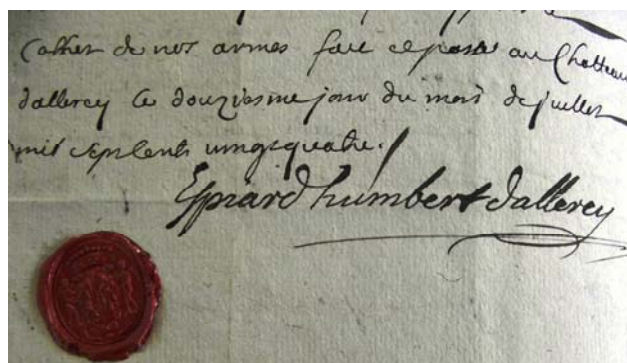 Cachet de nos armes fait et passé au Chatteau
dallerey Ce douziesme jour du mois de juillet
mil sept Cents vingt quatre.
Espiard humbert dallerey